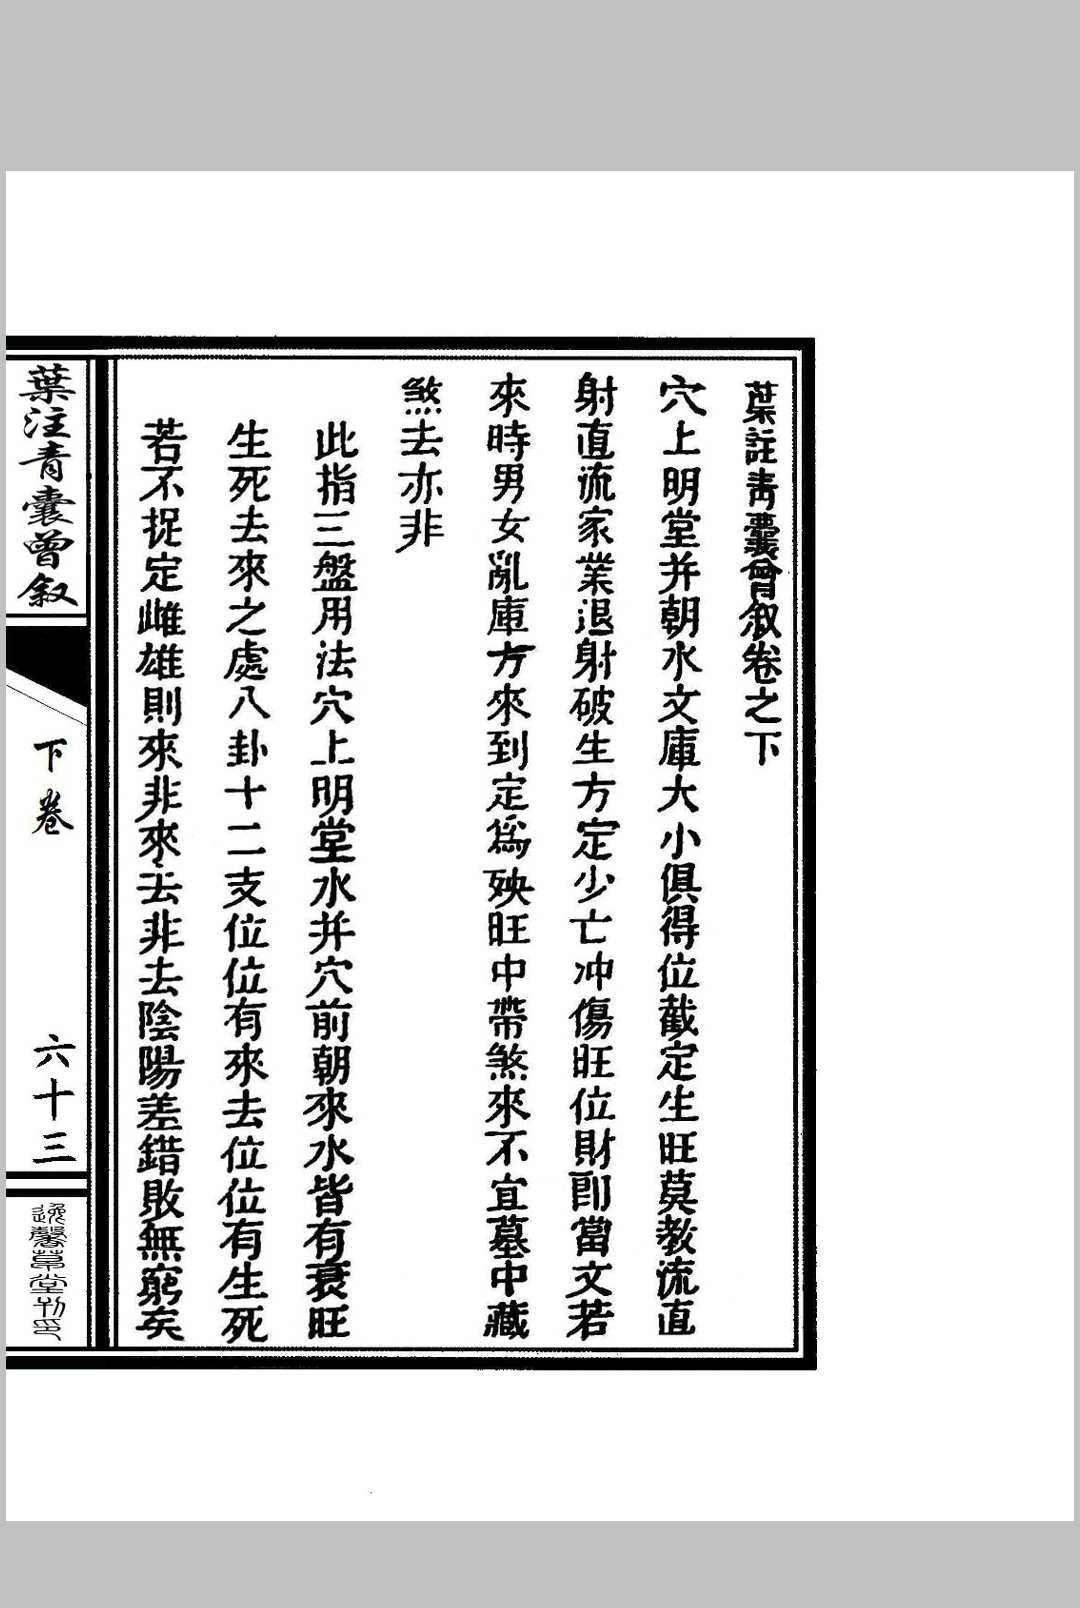 葉註青囊曾叙卷之下
穴上明堂并朝水文庫大小俱得位截定生旺莫教流直
射直流家業退射破生方定少亡冲傷旺位財即當文若
來時男女亂庫方來到定為殃旺中帶煞來不宜墓中藏
煞去亦非
此指三盤用法穴上明堂水并穴前朝來水皆有衰旺
生死去來之處八卦十二支位位有來去位位有生死
若不捉定雌雄則來非來去非去陰陽差錯敗無窮矣
葉注青囊曾叙
下卷
六十三
逸馨草堂刊印